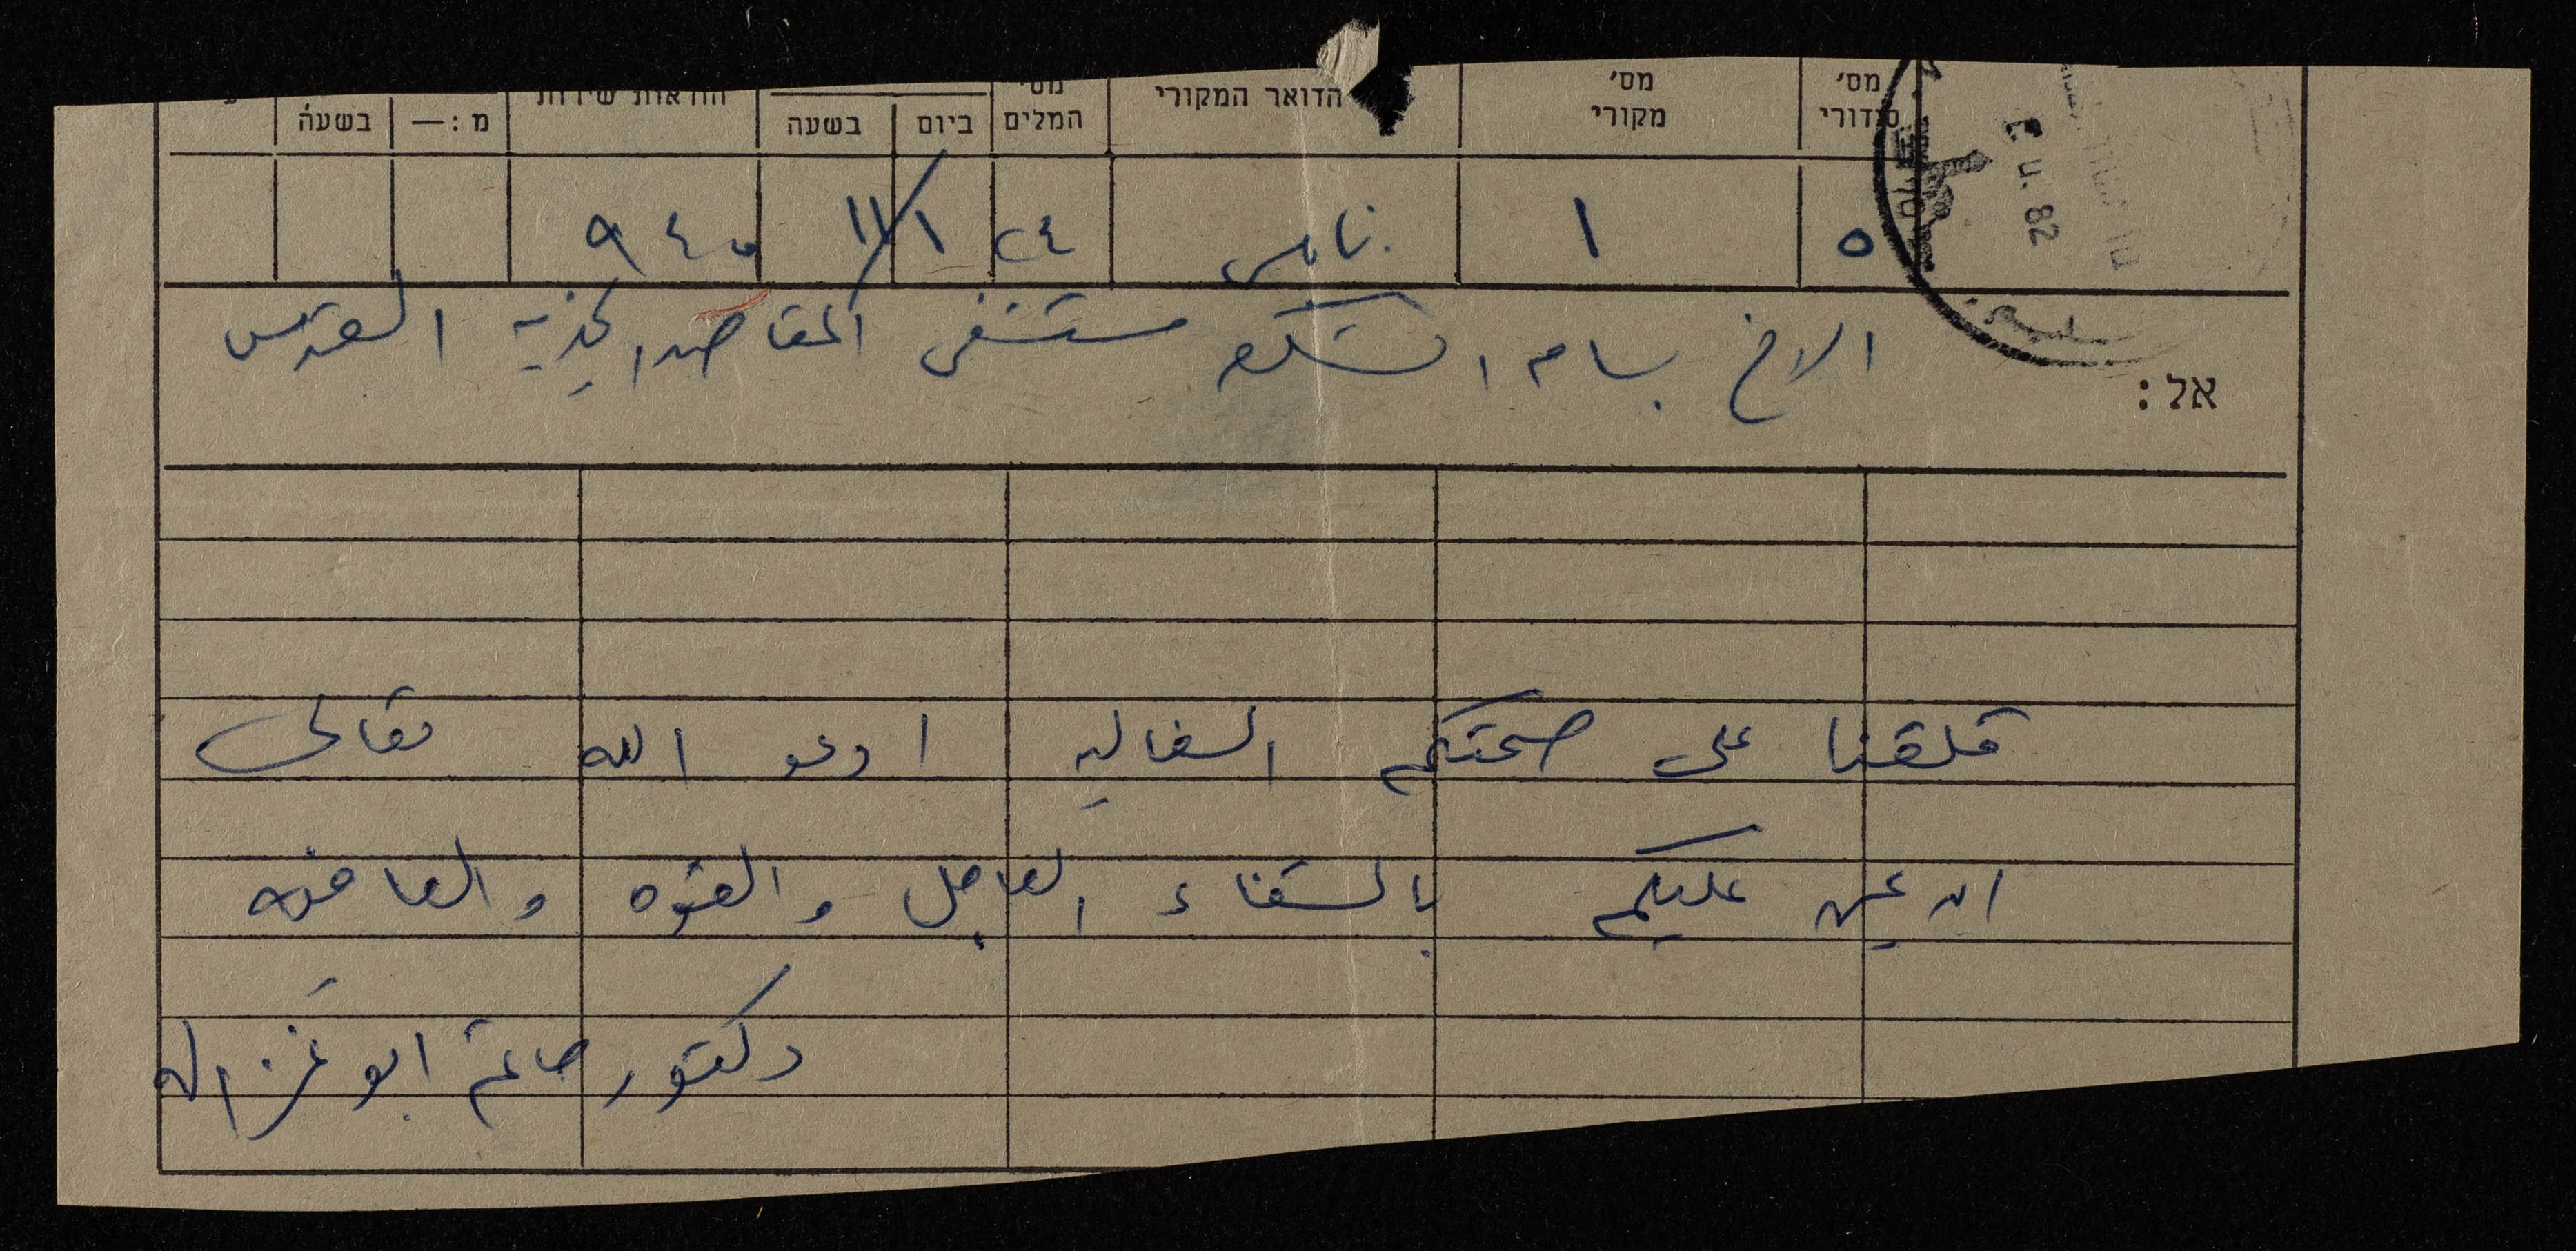 מס' סידורי
מס' מקורי
הדואר המקורי
מס' המלים
ביום
בשעה
הוראות שירות
מ : —
בשעה
٥ ١ نابلس ٢٤ ١/١١ ٩٤٠
82
אל :
الاخ بسام الشكعه مستشفى المقاصد الخيريه القدس
قلقنا على صحتكم الغاليه ادعو الله تعالى
ان يمن عليكم بالشفاء العاجل والقوه والعافيه
دكتور حاتم ابو غزاله